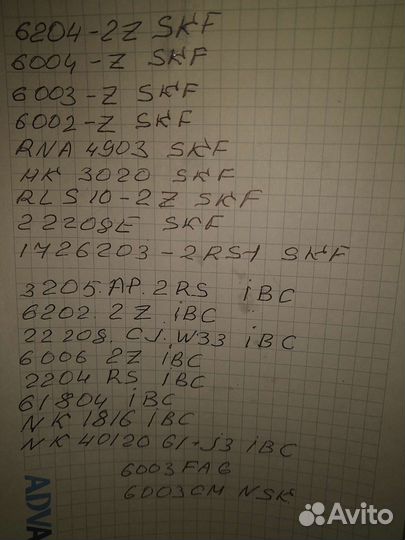 6204-2Z SKF
6004-Z SKF
6003-Z SKF
6002-Z SKF
RNA 4903 SKF
HK 3020 SKF
RLS 10-2Z SKF
22208E SKF
1726203-2RS1 SKF
3205.AP.2RS iBC
6202.2Z iBC
22208.CJ.W33 iBC
6006 2Z iBC
2204 RS iBC
61804 iBC
NK 1816 iBC
NK 40120 61-J3 iBC
6003 FAG
6003CM NSK
ADVA
Avito